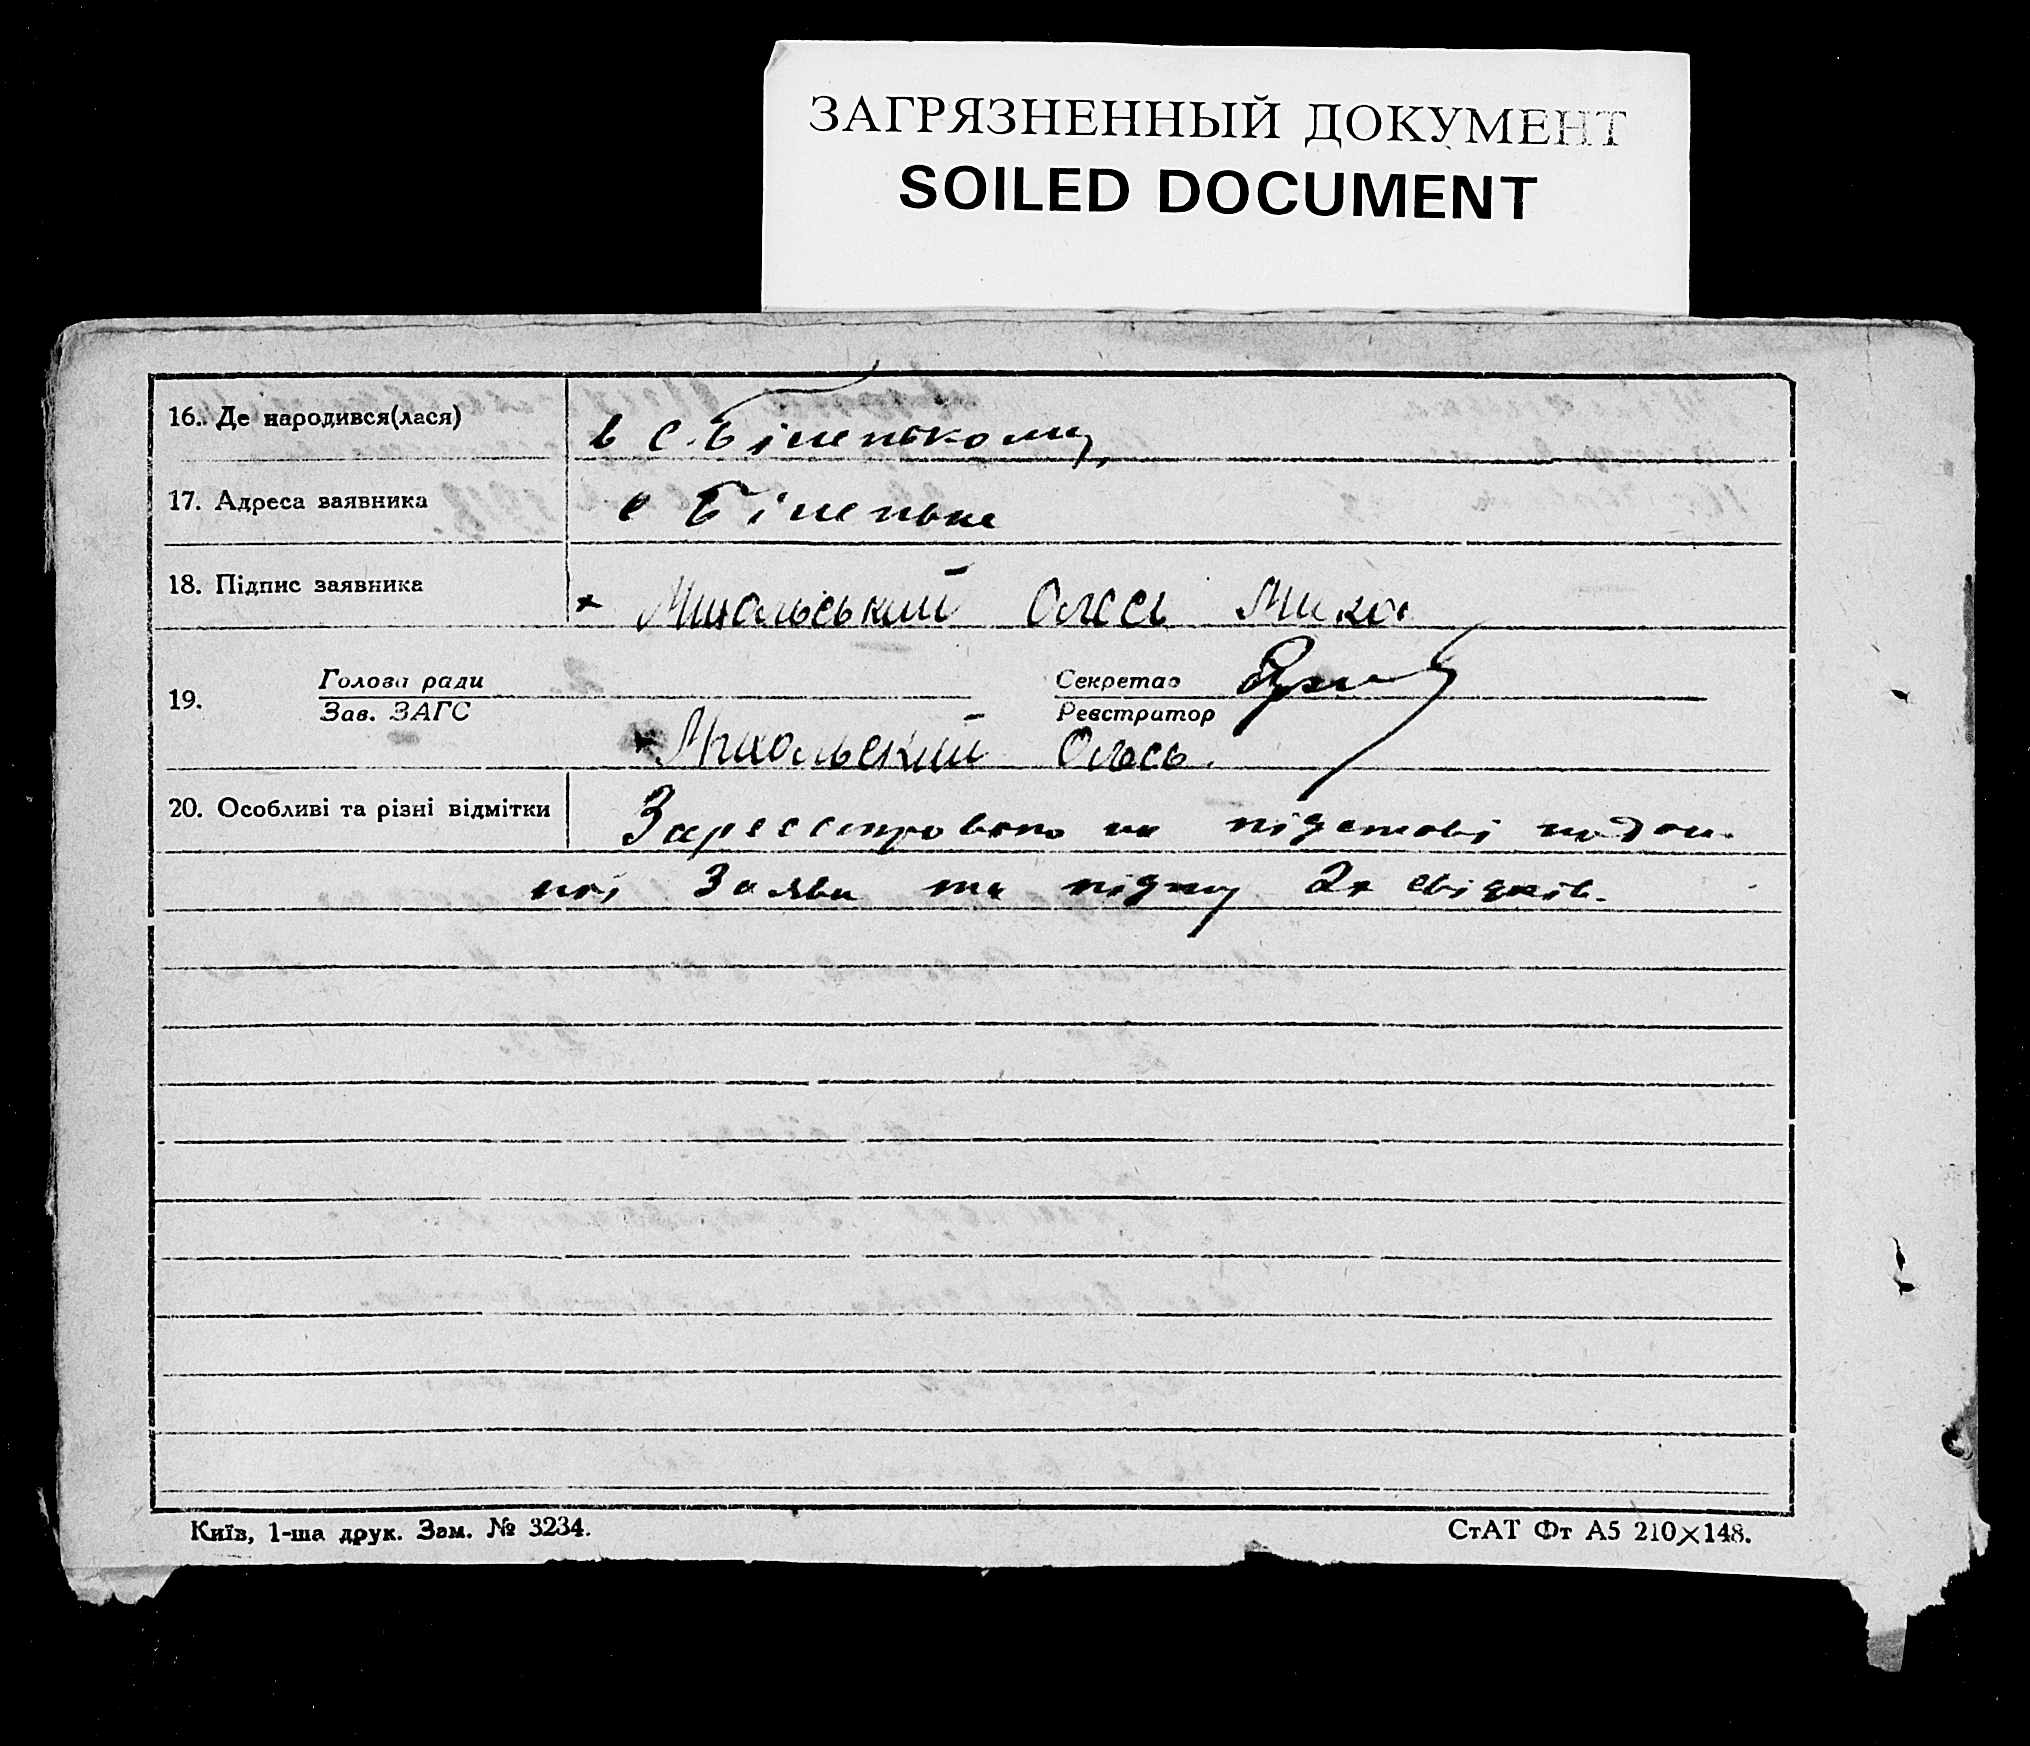 ЗАГРЯЗНЕННЫЙ ДОКУМЕНТ
SOILED DOCUMENT
16. Де народився(лася) в с. Біленькому,
17. Адреса заявника с Біленьке
18. Підпис заявника Олесь Мико
19. Голова ради Секретар
Зав. ЗАГС Реєстратор
Олесь.
20. Особливі та різні відмітки Зареєстровано на підставі подан-
ної Заяви та 2х свідків.
Київ, 1-ша друк. Зам. № 3234. СтАТ Фт А5 210×148.